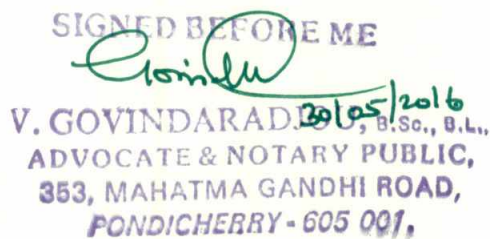 SIGNED BEFORE ME
30/05/2016
V. GOVINDARADJOU, B.Sc., B.L.,
ADVOCATE & NOTARY PUBLIC,
353, MAHATMA GANDHI ROAD,
PONDICHERRY - 605 001.